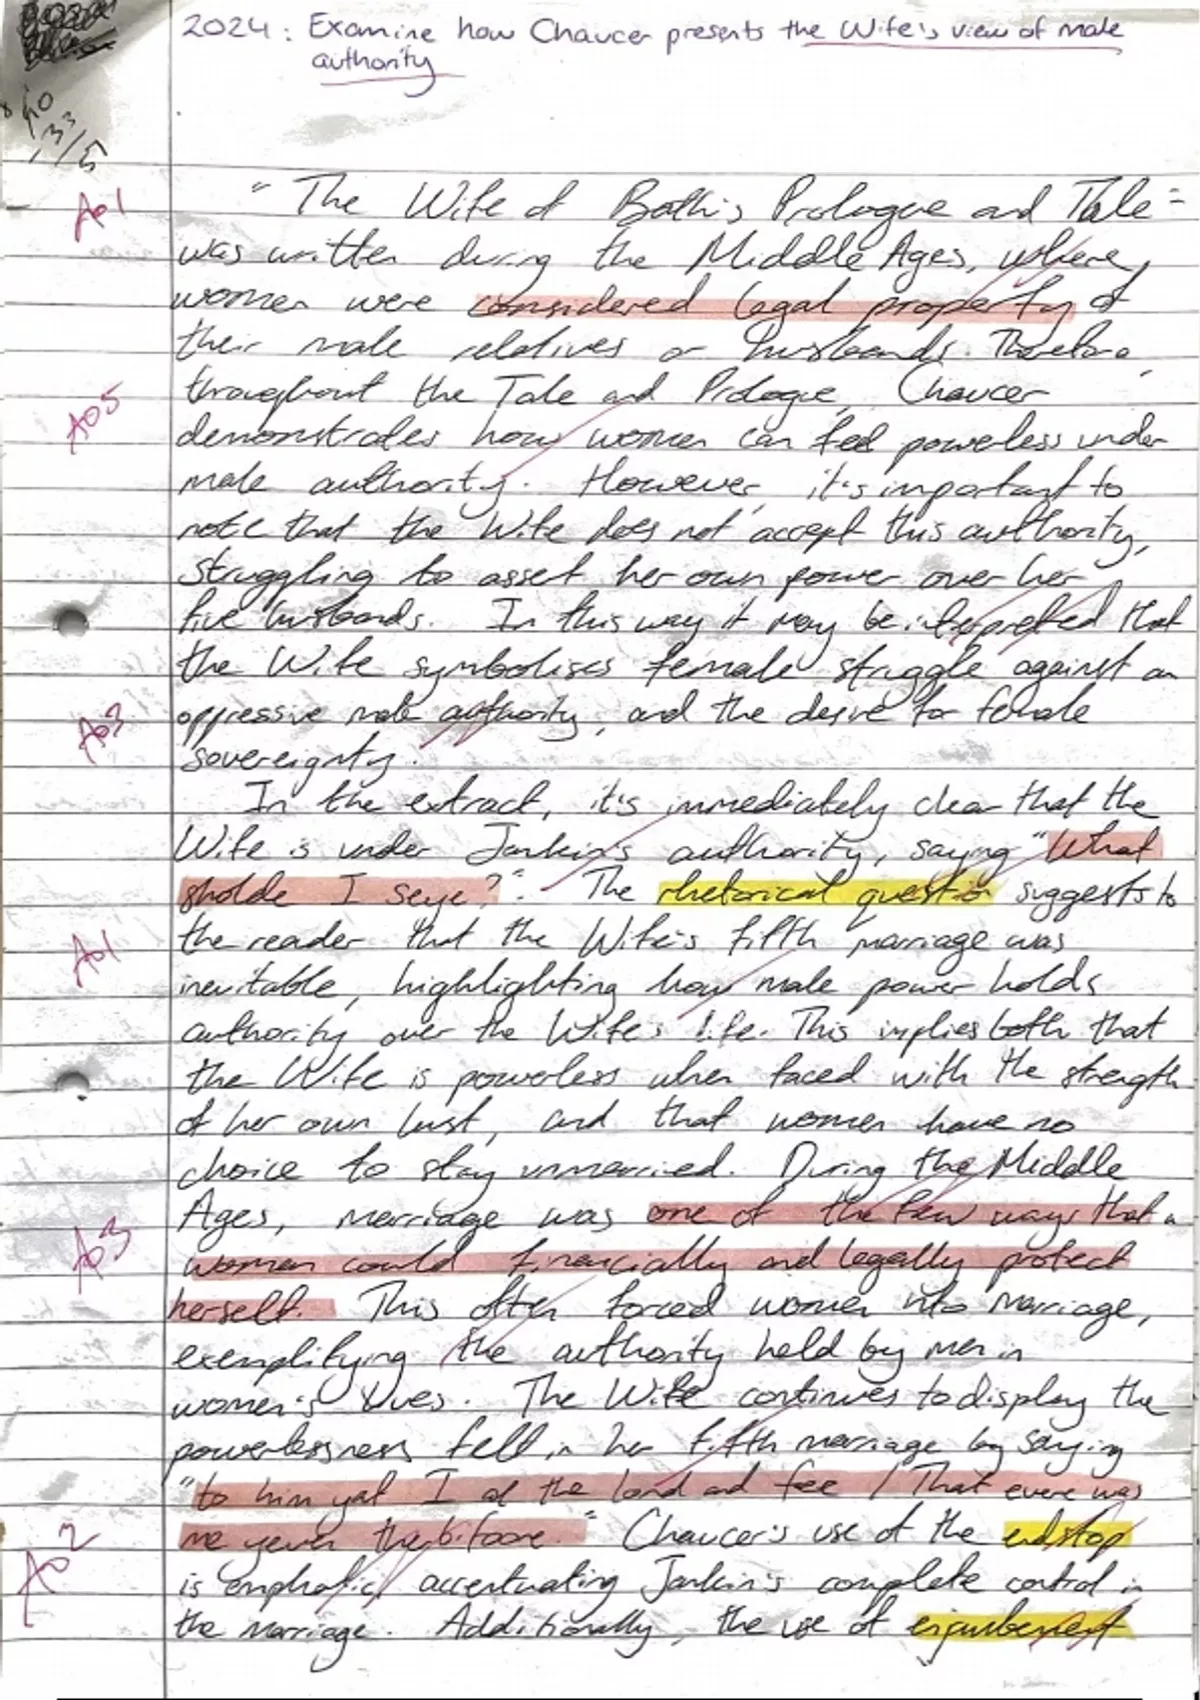 2024: Examine how Chaucer presents the Wife's view of male
authority
40
33/5
"The Wife of Bath's Prologue and Tale"
A01
was written during the Middle Ages, where,
women were considered legal property of
their male relatives or husbands. Therefore,
throughout the Tale and Prologue, Chaucer
A05
demonstrates how women can feel powerless under
male authority. However, it's important to
note that the Wife does not accept this authority,
struggling to asset her own power over her
five husbands. In this way it may be interpreted that
the Wife symbolises female struggle against an
A03
oppressive male authority, and the desire for female
sovereignty.
In the extract, it's immediately clear that the
Wife is under Jankin's authority, saying "What
sholde I seye?". The rhetorical question suggests to
A01
the reader that the Wife's fifth marriage was
inevitable, highlighting how male power holds
authority over the Wife's life. This implies both that
the Wife is powerless when faced with the strength
of her own lust, and that women have no
choice to stay unmarried. During the Middle
Ages, marriage was one of the few ways that a
A03
woman could financially and legally protect
herself. This often forced women into marriage,
exemplifying the authority held by men in
women's lives. The Wife continues to display the
powerlessness felt in her fifth marriage by saying
"to him yaf I al the lond and fee / That evere was
A02
me yeven therbifoore." Chaucer's use of the endstop
is emphatic, accentuating Jankin's complete control in
the marriage. Additionally, the use of enjambement